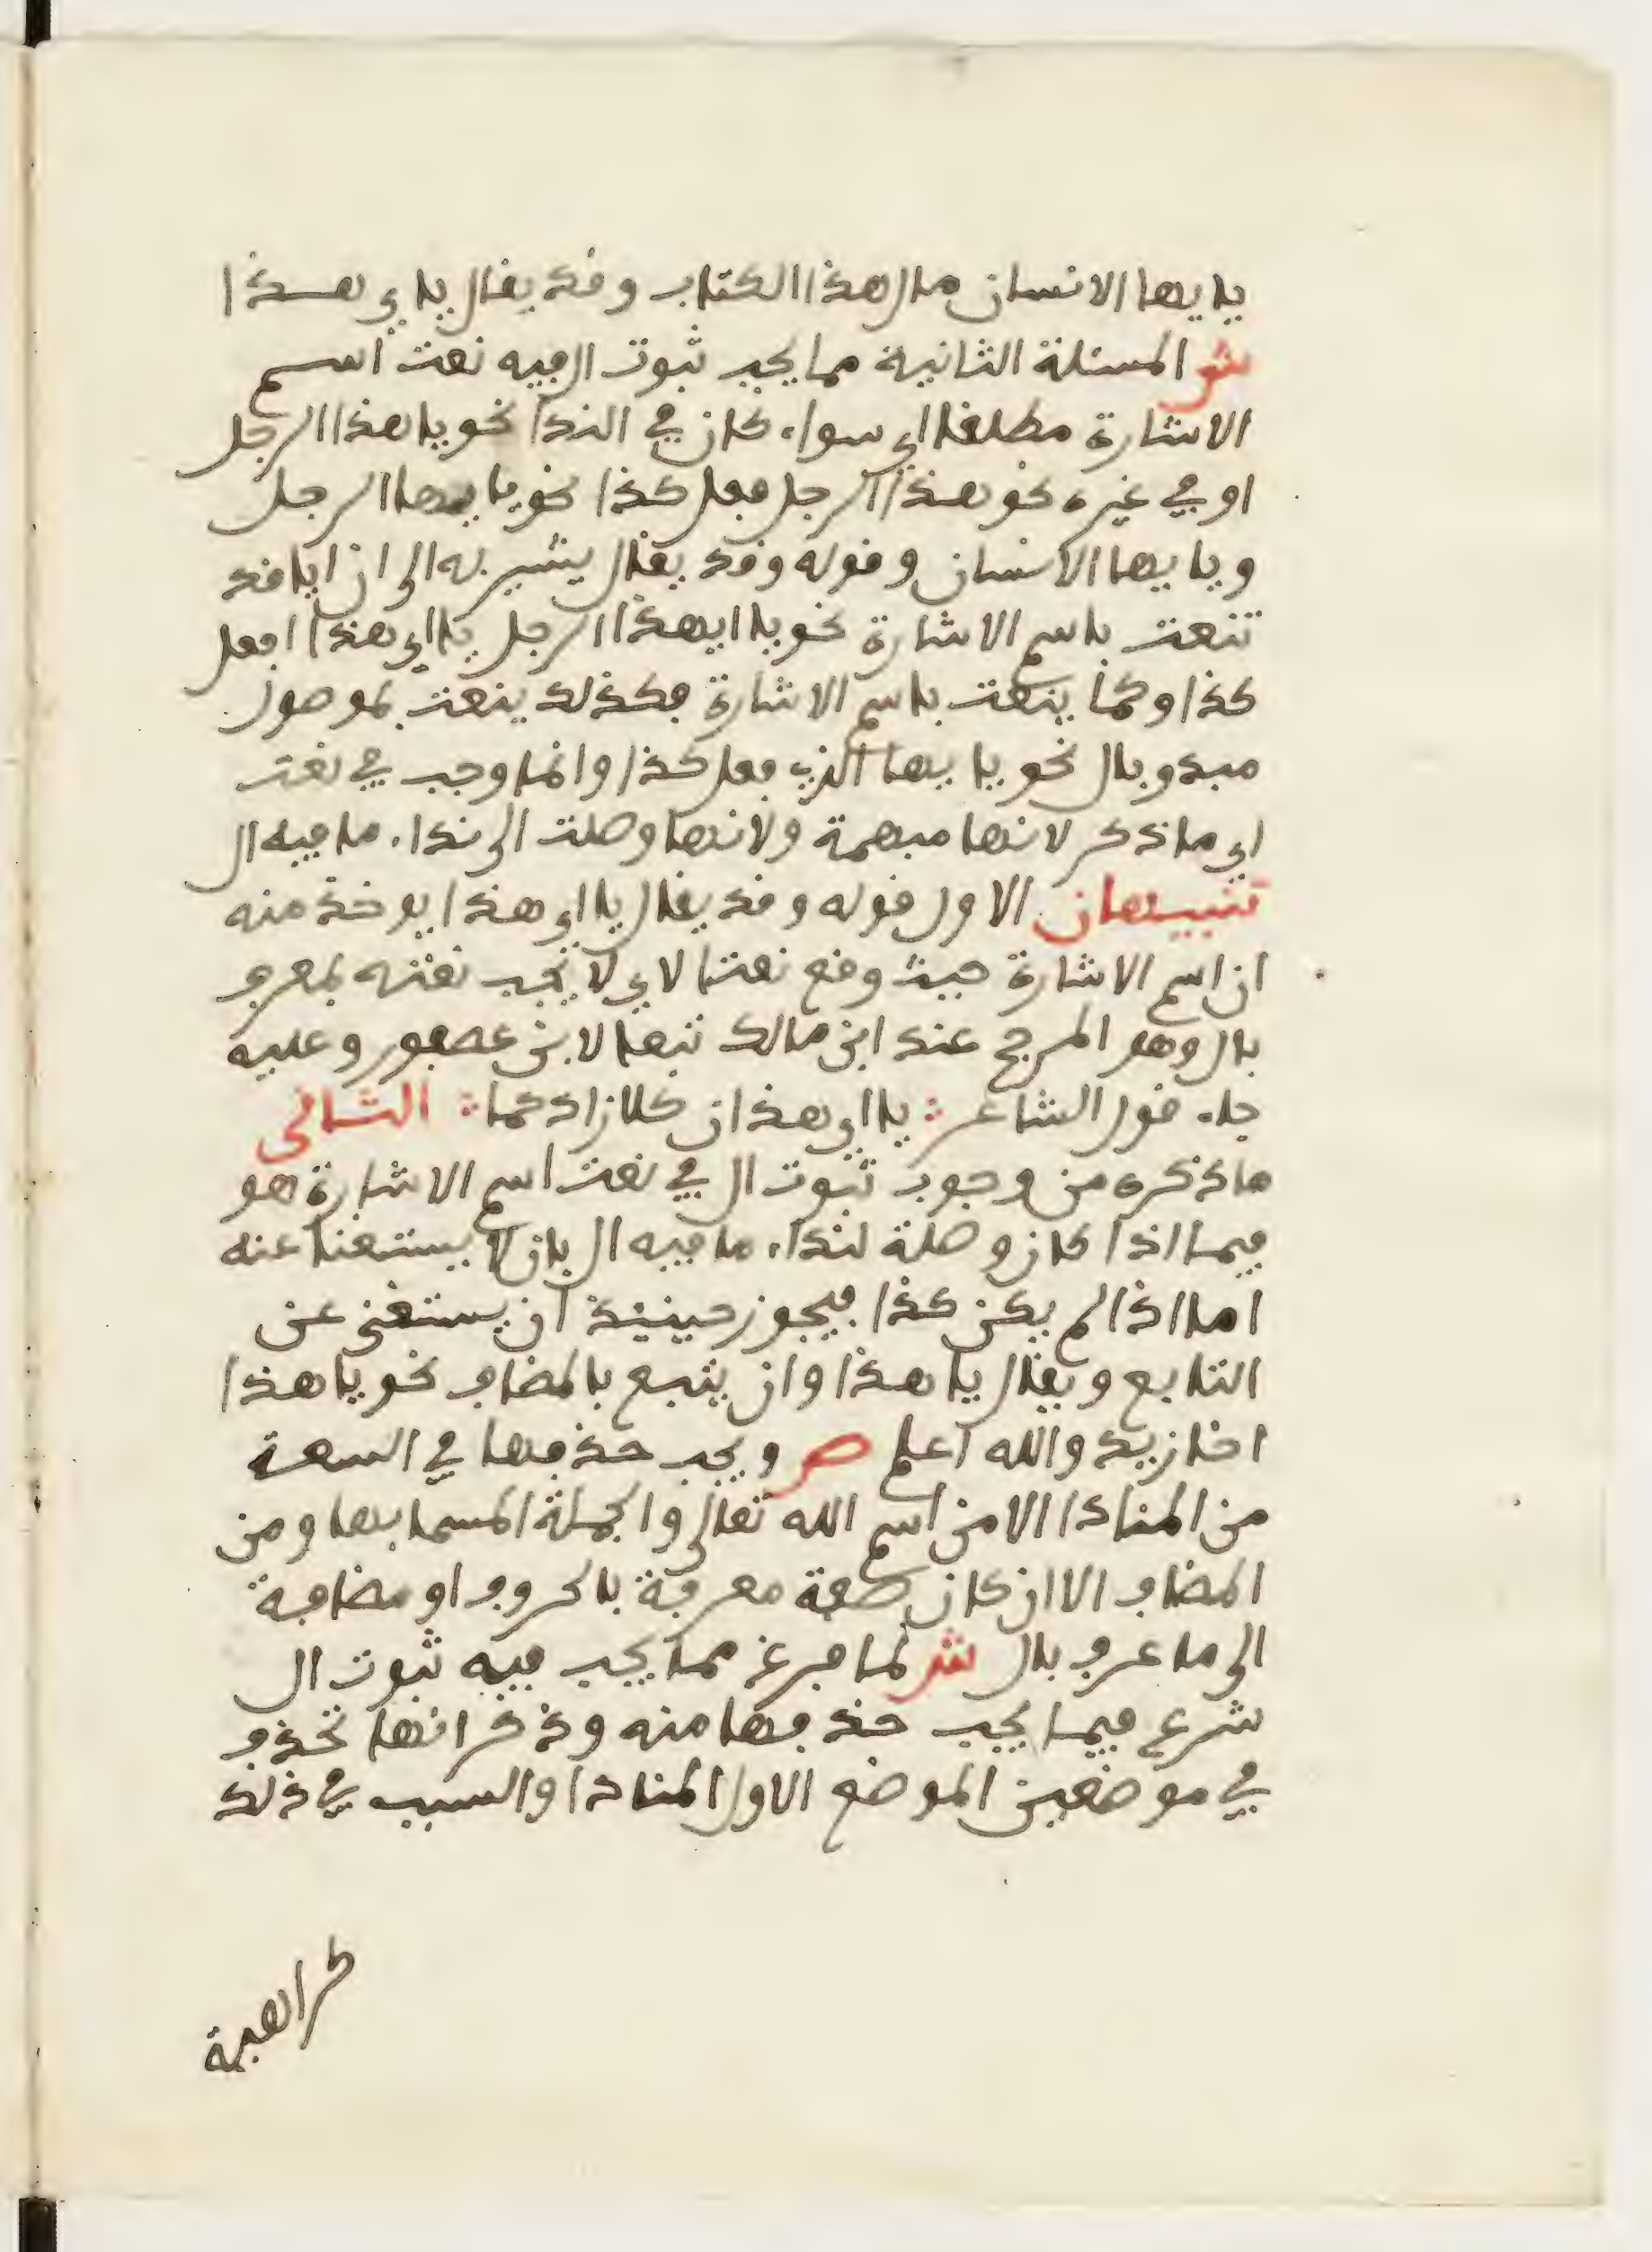 يايها الانسان مال هذا الكتاب وقد يقال ياي هذا
ش المسئلة الثانية مما يجب ثبوت ال فيه نعت اسم
الاشارة مطلقا اي سواء كان في الندا نحو يا هذا الرجل
او في غيره نحو هذا الرجل فعل كذا نحو يا يها الرجل
ويا يها الانسان وقوله وقد يقال يشير به الى ان ايا قد
تنعت باسم الاشارة نحو يا ايهذا الرجل يا اي هذا افعل
كذا وكما ينعت باسم الاشارة فكذلك ينعت بموصول
مبدو بال نحو يا يها الذي فعل كذا وانما وجب في نعت
اي ما ذكر لانها مبهمة ولانها وصلت الى نداء ما فيه ال
تنبيهان الاول قوله وقد يقال يا اي هذا يوخذ منه
ان اسم الاشارة حيث وقع نعتا لاي لا يجب نعته بمعرف
بال وهو المرجح عند ابن مالك تبعا لابن عصفور وعليه
جاء قول الشاعر يا اي هذان كلا زادكما الثاني
ما ذكره من وجوب ثبوت ال في نعت اسم الاشارة هو
فيما اذا كان وصلة لنداء ما فيه ال بان لا يستغنا عنه
اما اذا لم يكن كذا فيجوز حينيذ ان يستغنى عن
التابع ويقال يا هذا وان يتبع بالمضاف نحو يا هذا
اخا زيد والله اعلم ص ويجب حذفها في السعة
من المنادا الا من اسم الله تعالى والجملة المسما بها ومن
المضاف الا ان كان صفة معرفة بالحروف او مضافة
الى ما عرف بال ش لما فرغ مما يجب فيه ثبوت ال
شرع فيما يجب حذفها منه وذكر انها تحذف
في موضعين الموضع الاول المنادا والسبب في ذلك
كراهية